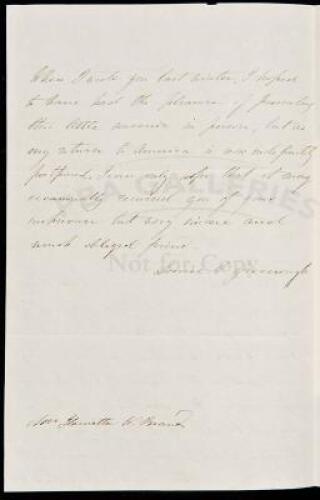 When I wrote you last winter, I hoped
to have had the pleasure of presenting
this little souvenir in person, but as
my return to America is now indefinitely
postponed, I can only hope that it may
occasionally remind you of your
unknown but very sincere and
much obliged friend.
Greenough
PBA GALLERIES
Not for Copy
Henrietta